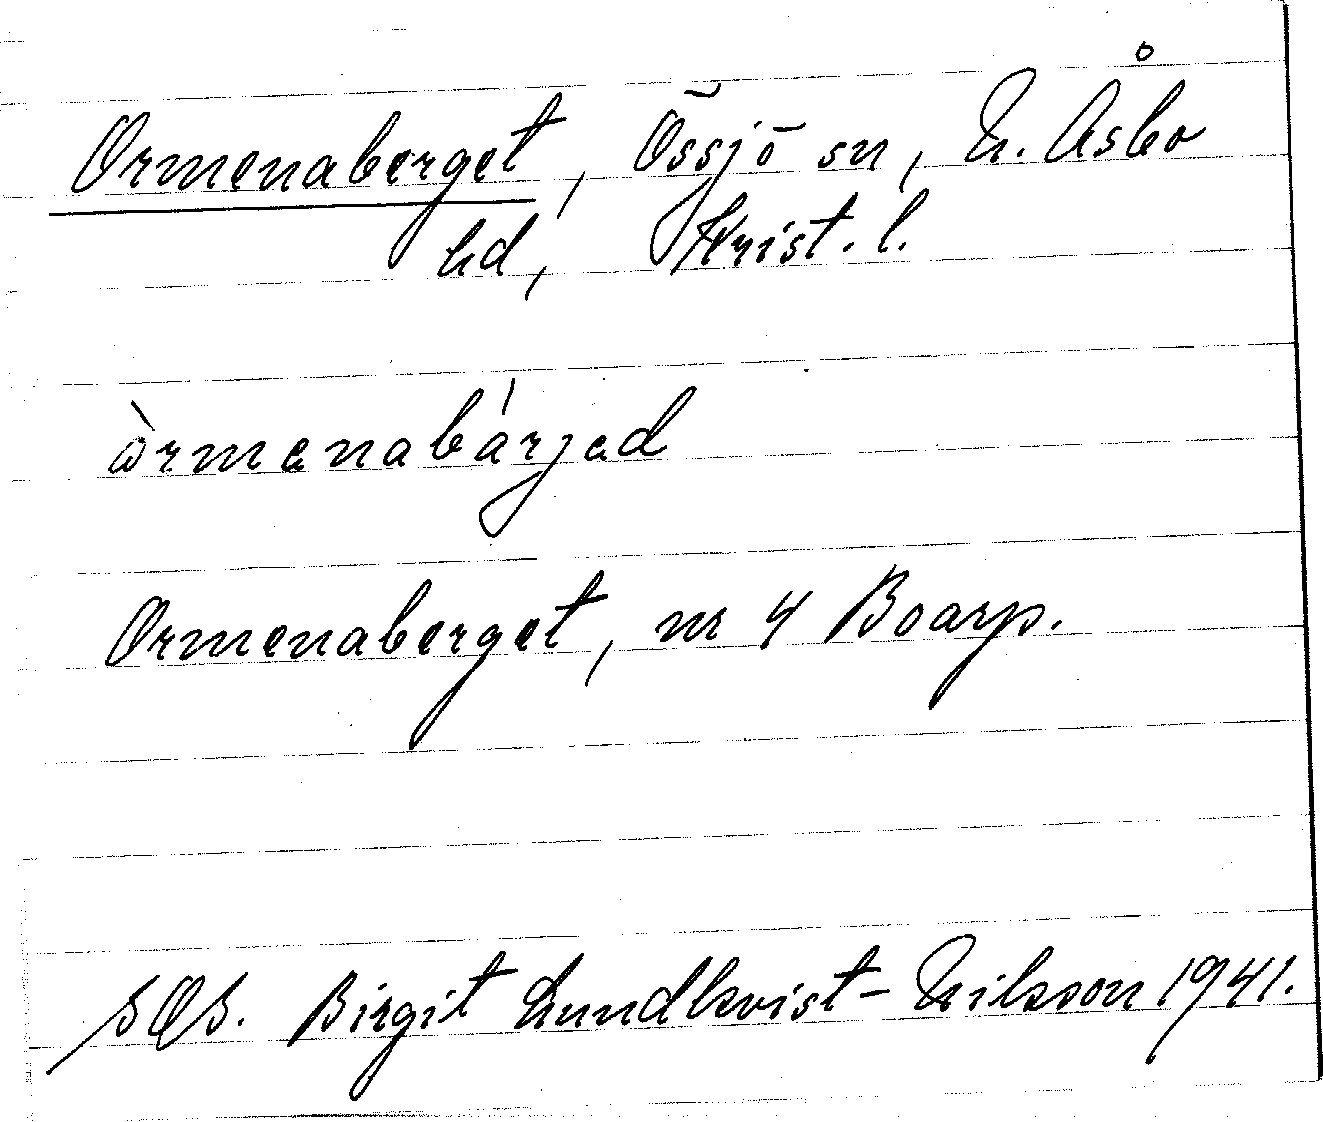 Ormenaberget, Össjö sn, N. Åsbo
hd, Krist. l.
òrmenabárjed
Ormenaberget, nr 4 Boarp.
SOS. Birgit Lundkvist-Nilsson 1941.